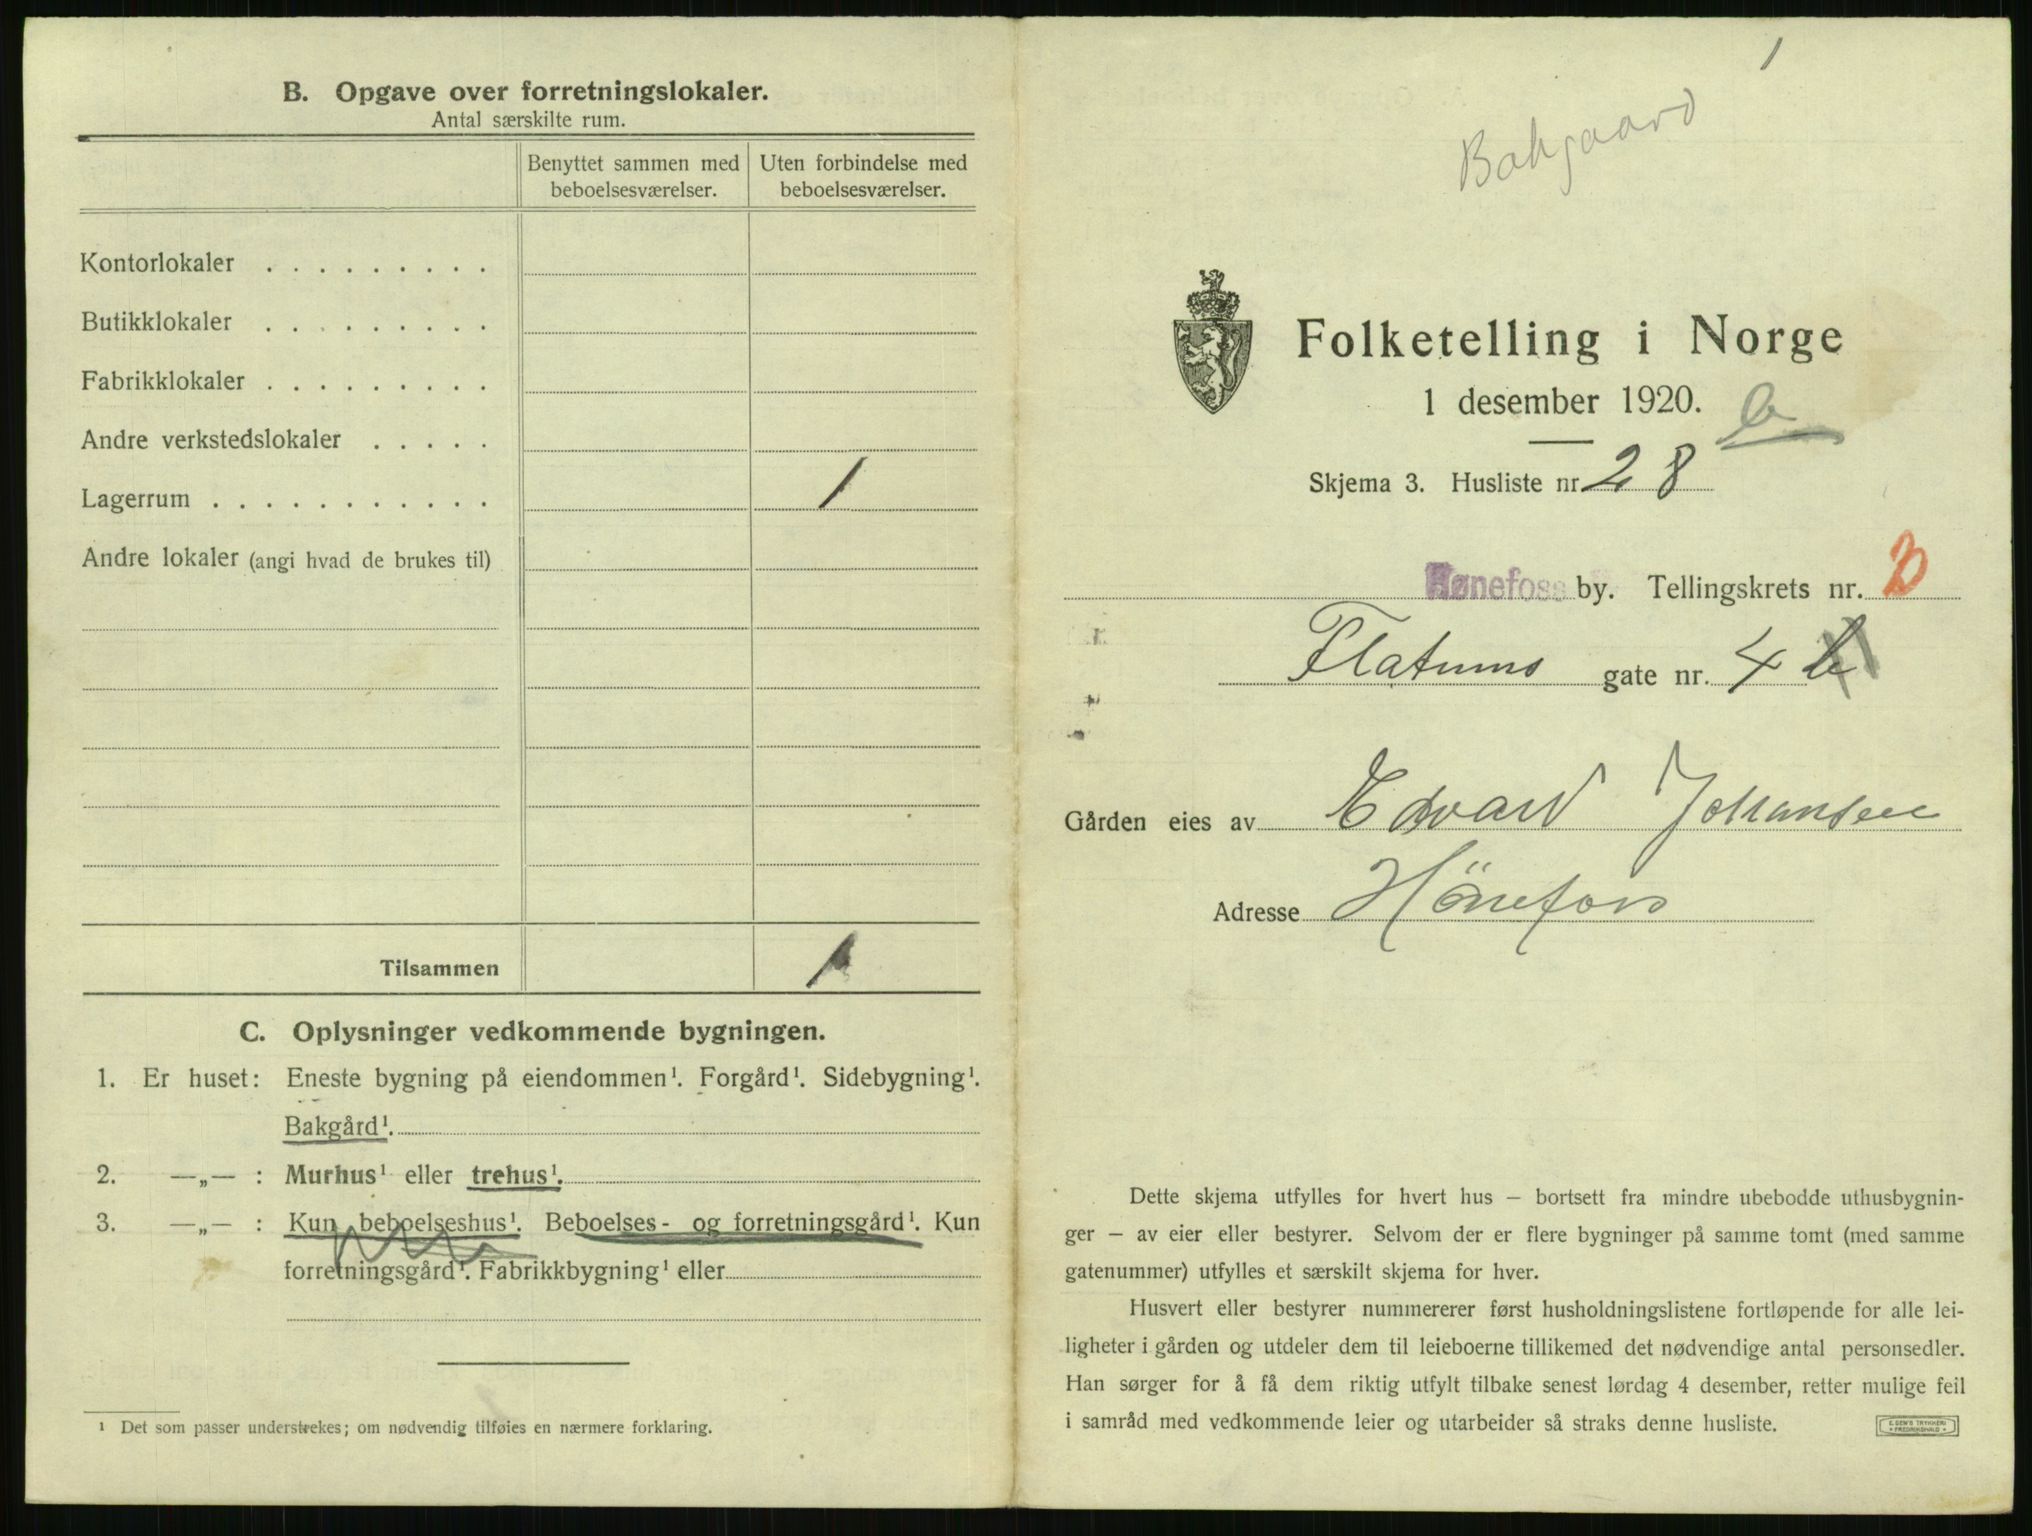 B. Opgave over forretningslokaler.
Antal særskilte rum.
Benyttet sammen med
beboelsesværelser.
Uten forbindelse med
beboelsesværelser.
Kontorlokaler . . . . . . . . .
Butikklokaler . . . . . . . . .
Fabrikklokaler . . . . . . . . .
Andre verkstedslokaler . . . . .
Lagerrum . . . . . . . . . . . 1
Andre lokaler (angi hvad de brukes til)
Tilsammen 1
C. Oplysninger vedkommende bygningen.
1. Er huset: Eneste bygning på eiendommen¹. Forgård¹. Sidebygning¹.
Bakgård¹.
2. —„— : Murhus¹ eller trehus¹.
3. —„— : Kun beboelseshus¹. Beboelses- og forretningsgård¹. Kun
forretningsgård¹. Fabrikkbygning¹ eller
¹ Det som passer understrekes; om nødvendig tilføies en nærmere forklaring.
1
Bakgaard
Folketelling i Norge
1 desember 1920.
b
Skjema 3. Husliste nr 28
Hønefoss by. Tellingskrets nr. 3
Flatums gate nr. 4 b
Gården eies av Edvard Johansen
Adresse Hönefoss
Dette skjema utfylles for hvert hus – bortsett fra mindre ubebodde uthusbygnin-
ger – av eier eller bestyrer. Selvom der er flere bygninger på samme tomt (med samme
gatenummer) utfylles et særskilt skjema for hver.
Husvert eller bestyrer nummererer først husholdningslistene fortløpende for alle lei-
ligheter i gården og utdeler dem til leieboerne tillikemed det nødvendige antal personsedler.
Han sørger for å få dem riktig utfylt tilbake senest lørdag 4 desember, retter mulige feil
i samråd med vedkommende leier og utarbeider så straks denne husliste.
E. SEM'S TRYKKERI
FREDRIKSHALD